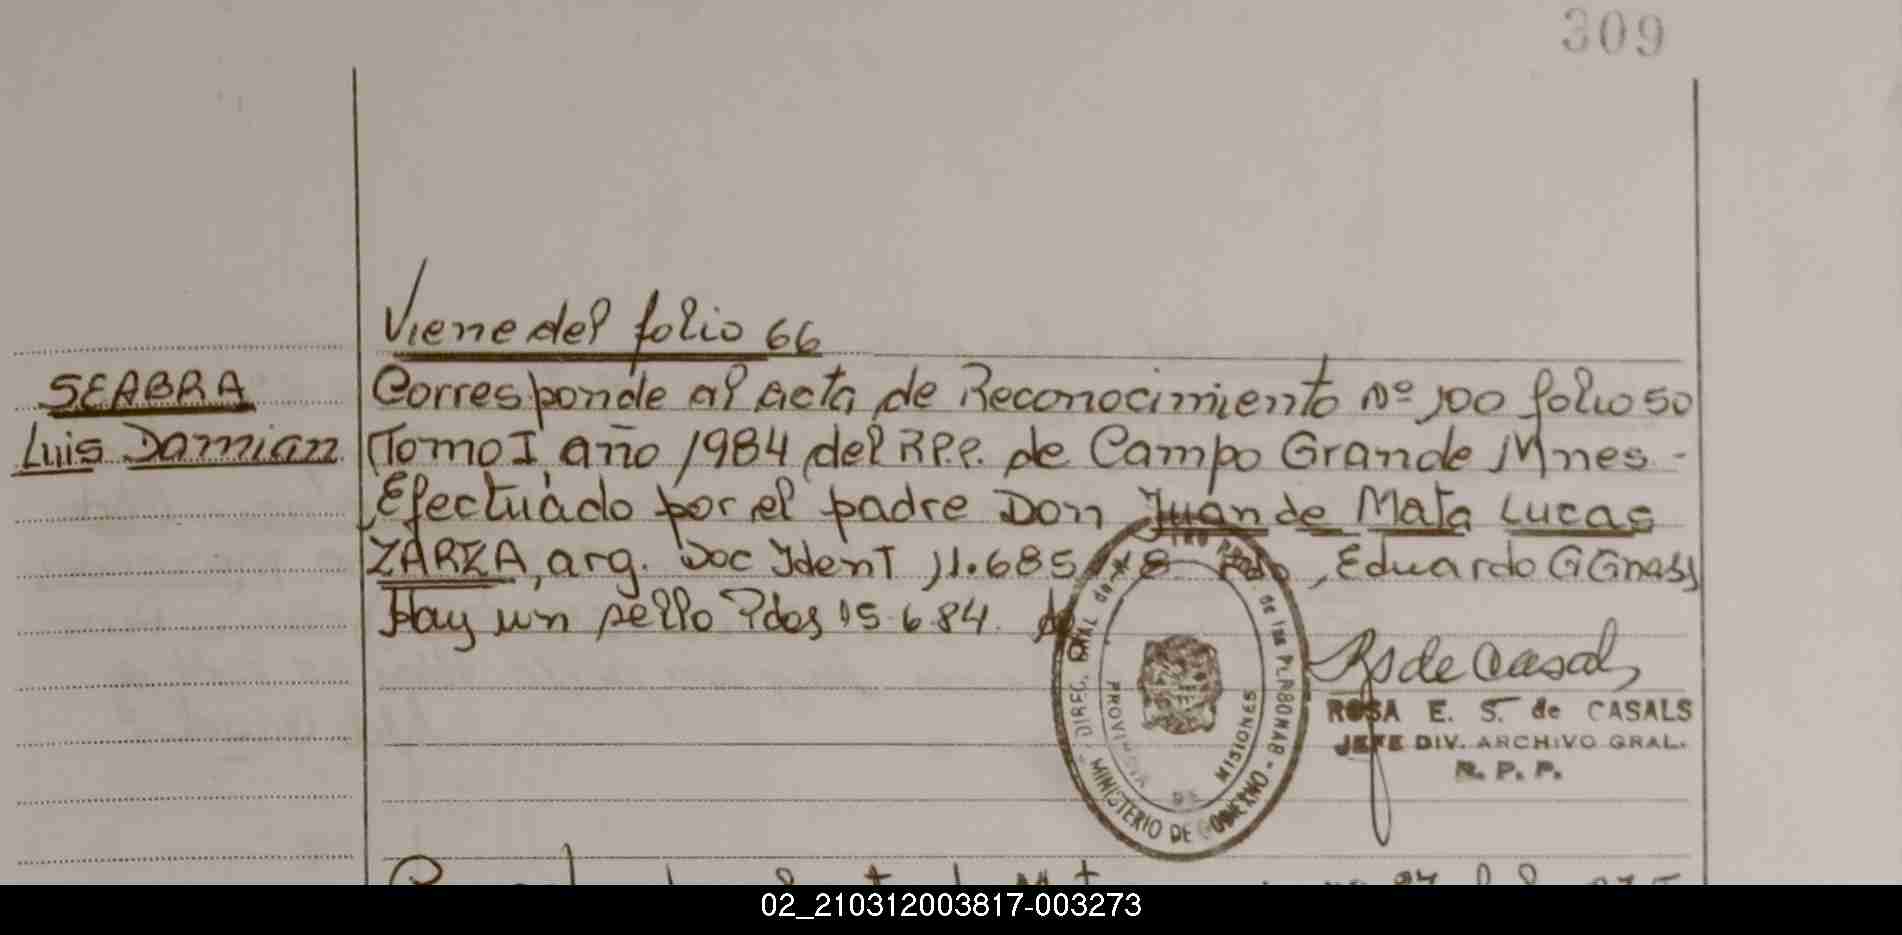 309
Viene del folio 66
SEABRA
Luis Damian
Corresponde al acta de Reconocimiento Nº 100 folio 50
Tomo I año 1984 del R.P.P. de Campo Grande Mnes.-
Efectuado por el padre Don Juan de Mata Lucas
ZARZA, arg. Doc Ident 11.685 Fdo, Eduardo G Gnass
Hay un sello Pdas 15.6.84.
DIREC. GRAL de las PERSONAS
PROVINCIA DE MISIONES
MINISTERIO DE GOBIERNO
Rs de Casals
ROSA E. S. de CASALS
JEFE DIV. ARCHIVO GRAL.
R. P. P.
02_210312003817-003273